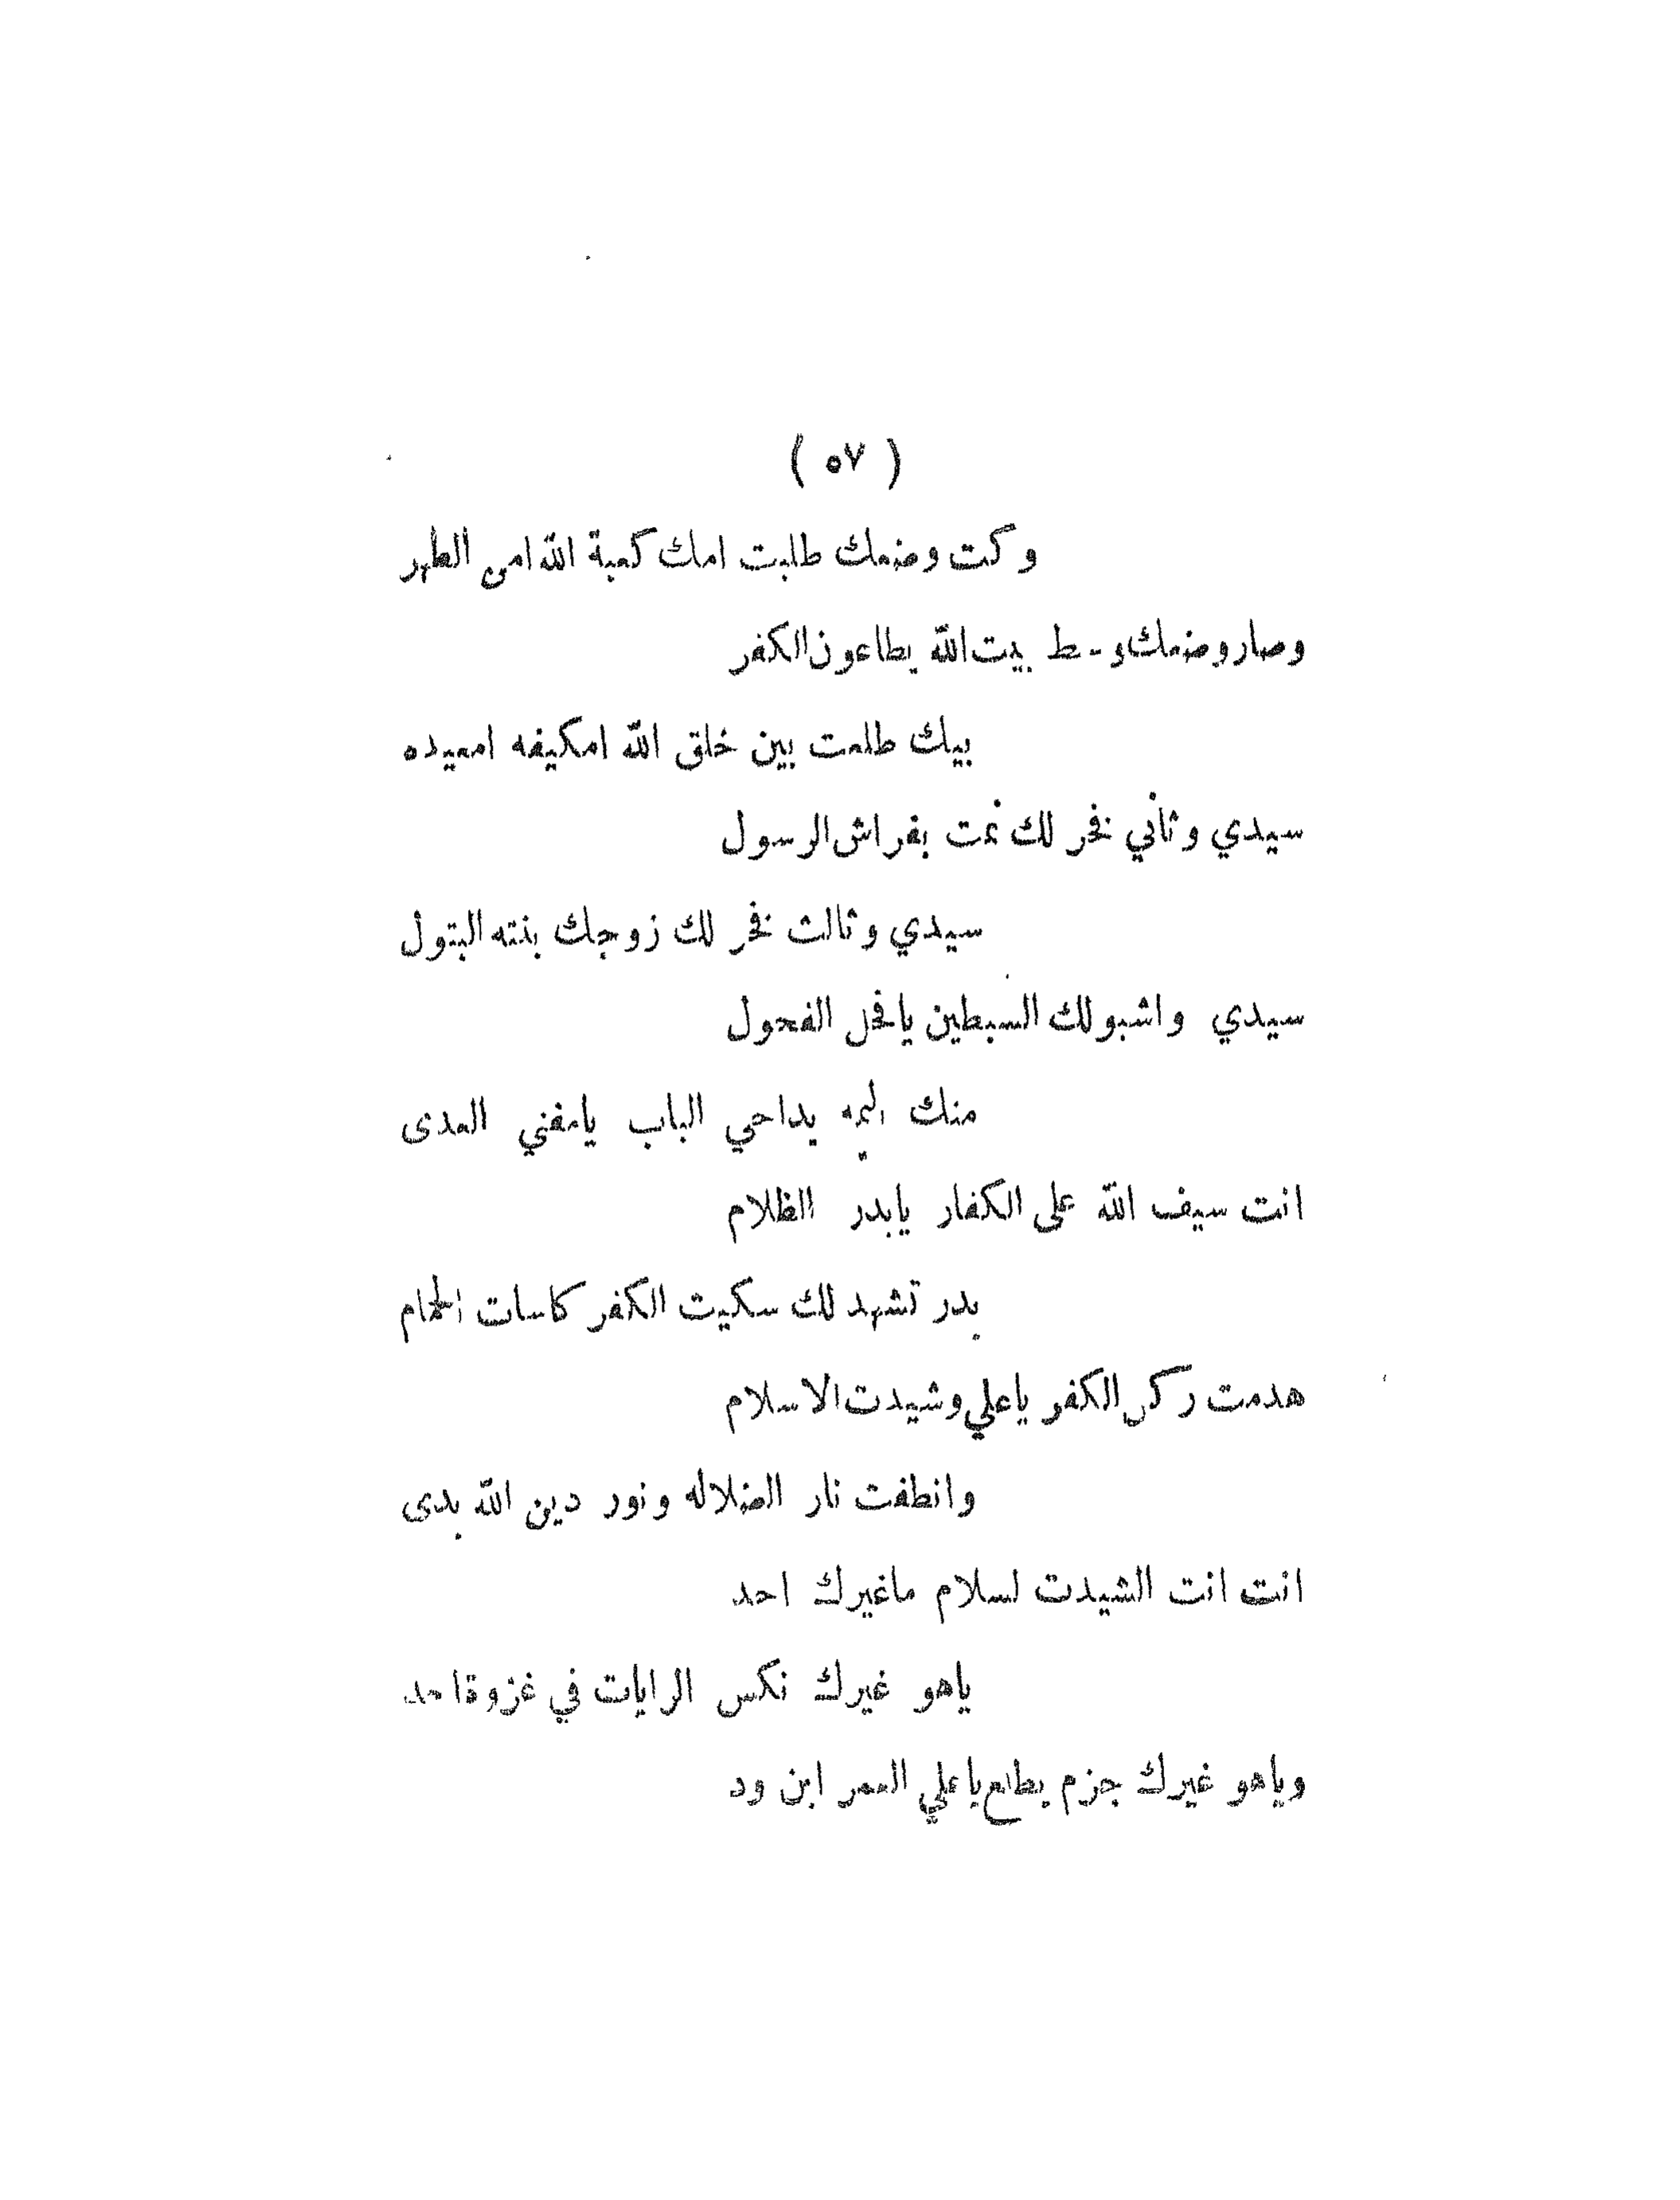 ( ٥٧ )
وكت وضعك طلبت امك كعبة الله امن الطهر
وصار وضعك وسط بيت الله يطاعون الكفر
بيك طلعت بين خلق الله امكيفه امعيده
سيدي وثاني فخر لك نمت بفراش الرسول
سيدي وثالث فخر لك زوجك بنته البتول
سيدي واشبولك السبطين يافحل الفحول
منك اليمه يداحي الباب يامفني العدى
انت سيف الله على الكفار يابدر الظلام
بدر تشهد لك سكيت الكفر كاسات الحمام
هدمت ركن الكفر ياعلي وشيدت الاسلام
وانطفت نار الضلاله ونور دين الله بدى
انت انت الشيدت لسلام ماغيرك احد
ياهو غيرك نكس الرايات في غزوة احد
وياهو غيرك جزم ياعلي العمر ابن ود